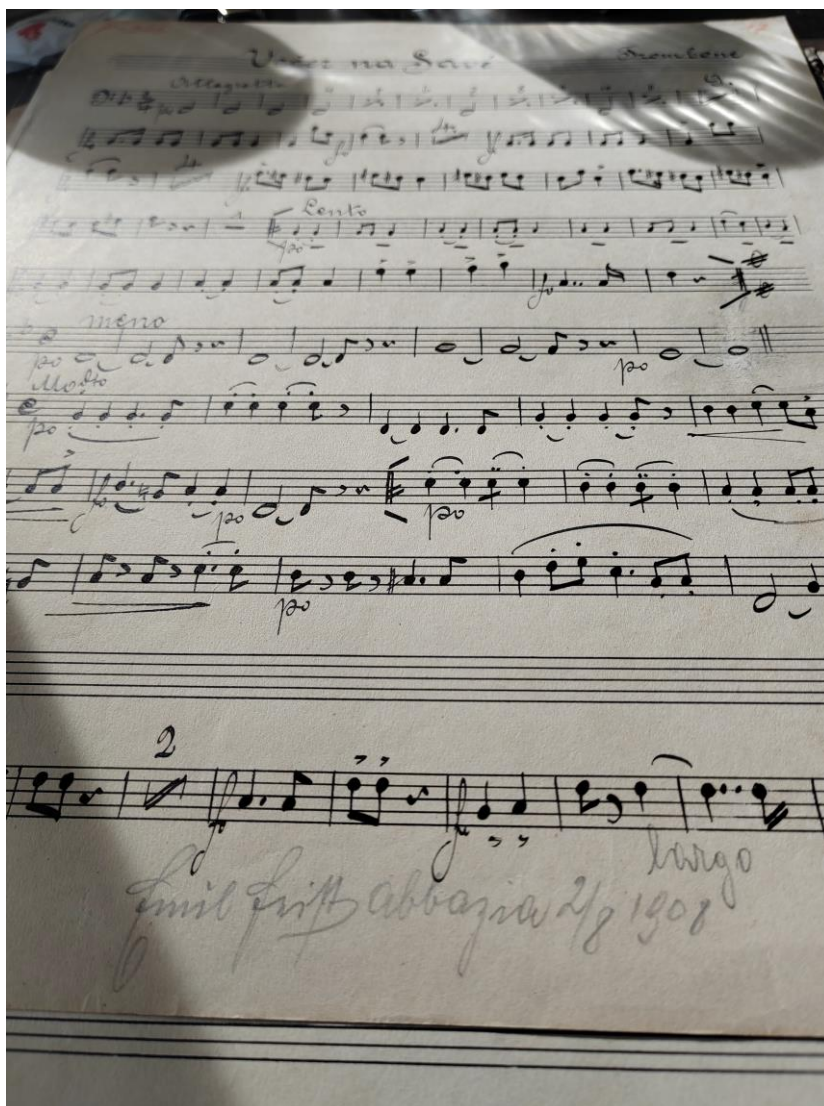 Večer na Savě Trombone
Allegretto
po
fo
Lento
po
fo
meno
po po
Modto
po
fo po po
po
2
f
f largo
Emil Feist Abbazia 2/8 1908